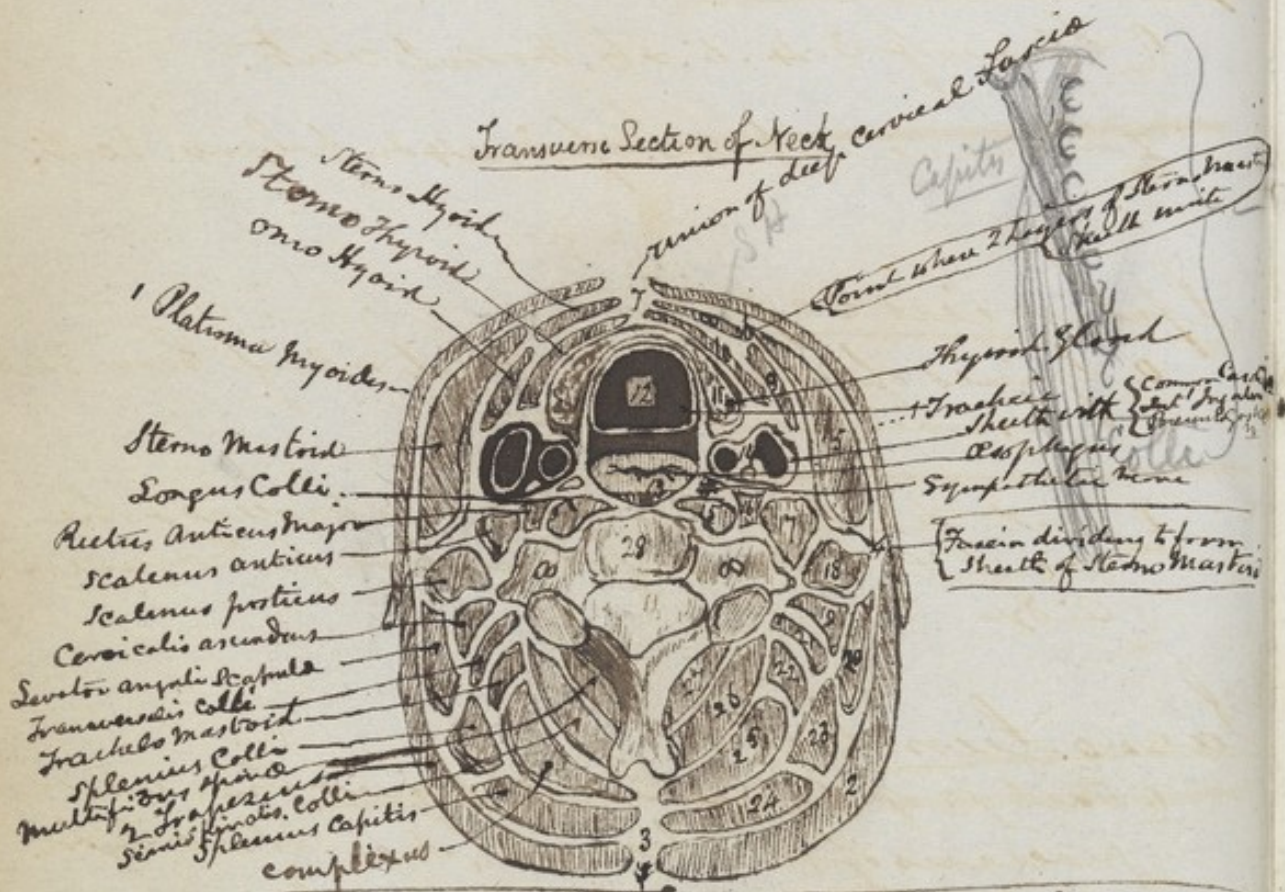 Transverse Section of Neck
union of deep cervical Fascia
Sterno Hyoid
Sterno Thyroid
omo Hyoid
1 Platisma Myoides
Sterno Mastoid
Longus Colli
Rectus Anticus Major
Scalenus anticus
Scalenus posticus
Cervicalis ascendens
Levator anguli Scapula
Transversalis Colli
Trachelo Mastoid
Splenius Colli
Multifidus spinae
2 Trapezius
Semispinalis Colli
Splenius Capitis
Complexus
Capitis
Point where 2 layers of Sterno Mast
sheath unite
Thyroid Gland
Trachea
Sheath with
Common Car
Int Jugular
Pneumo
Oesophagus
Colli
Sympathetic nerve
Fascia dividing to form
sheath of Sterno Mastoi
S H
7
12
11
9
15
28
8
17
18
9
20
22
26
25
23
24
2
3